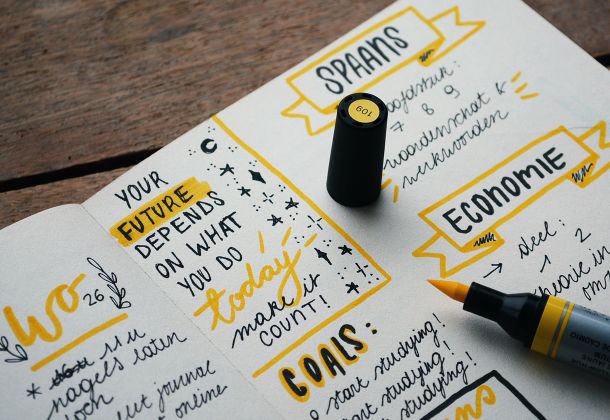 Wo
26
* 11u
nagels laten
doch
journal
online
YOUR
FUTURE
DEPENDS
ON WHAT
YOU DO
today
make it
COUNT!
GOALS:
start studying!
start studying!
studying!
SPAANS
hoofdstuk:
7 8 9
woordenschat &
werkwoorden
ECONOMIE
→ deel:
1 2
theorie in
609